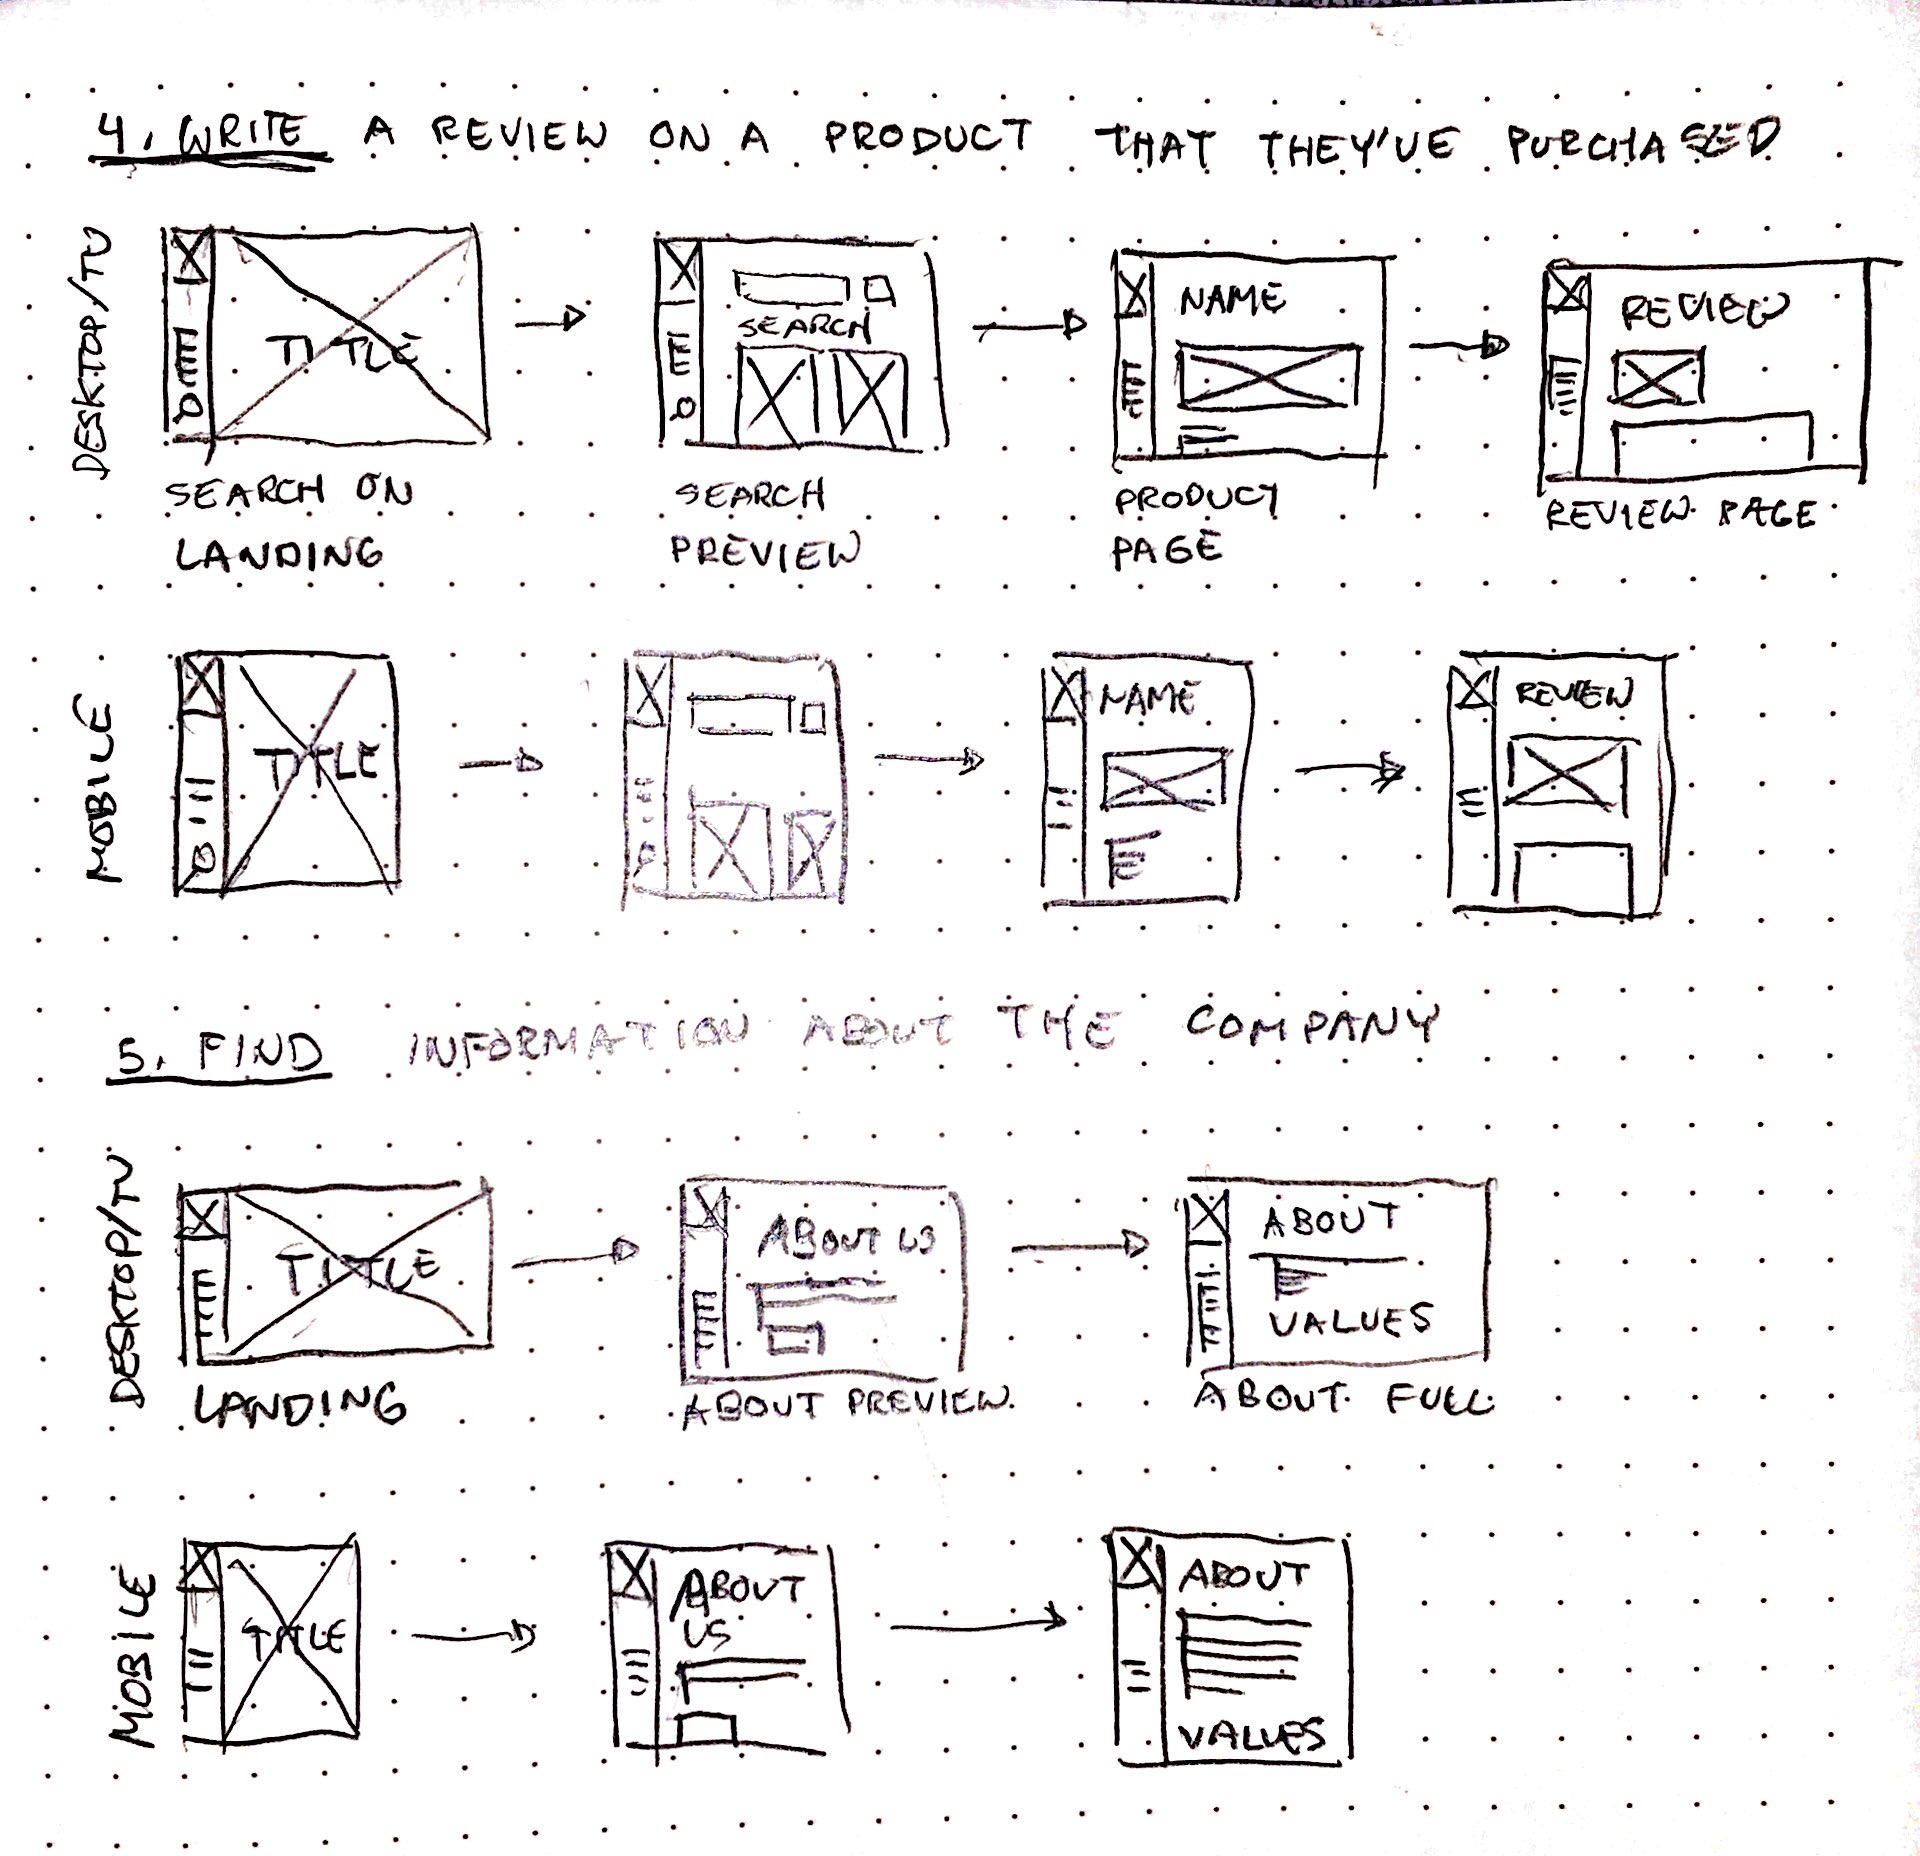 4. WRITE A REVIEW ON A PRODUCT THAT THEY'VE PURCHASED
DESKTOP/TV
TITLE
SEARCH ON
LANDING
SEARCH
SEARCH
PREVIEW
NAME
PRODUCT
PAGE
REVIEW
REVIEW PAGE
MOBILE
TITLE
NAME
REVIEW
5. FIND INFORMATION ABOUT THE COMPANY
DESKTOP/TV
TITLE
LANDING
ABOUT US
ABOUT PREVIEW
ABOUT
VALUES
ABOUT FULL
MOBILE
TITLE
ABOUT
US
ABOUT
VALUES